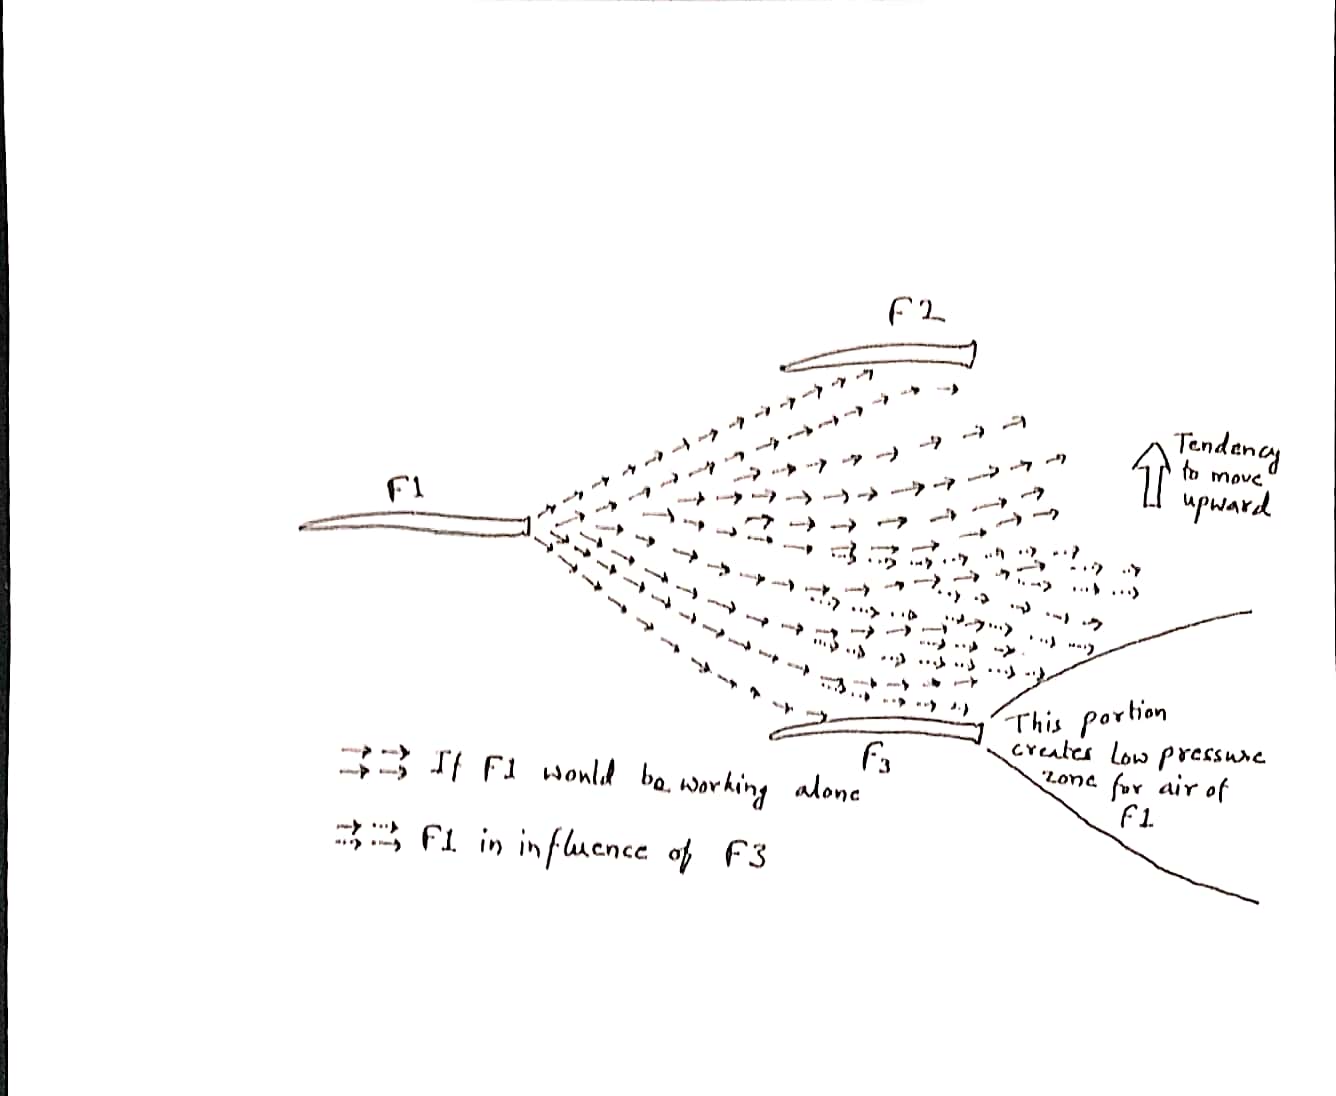 F2
Tendency
to move
upward
F1
This portion
creates Low pressure
zone for air of
F1
F3
If F1 would be working alone
F1 in influence of F3